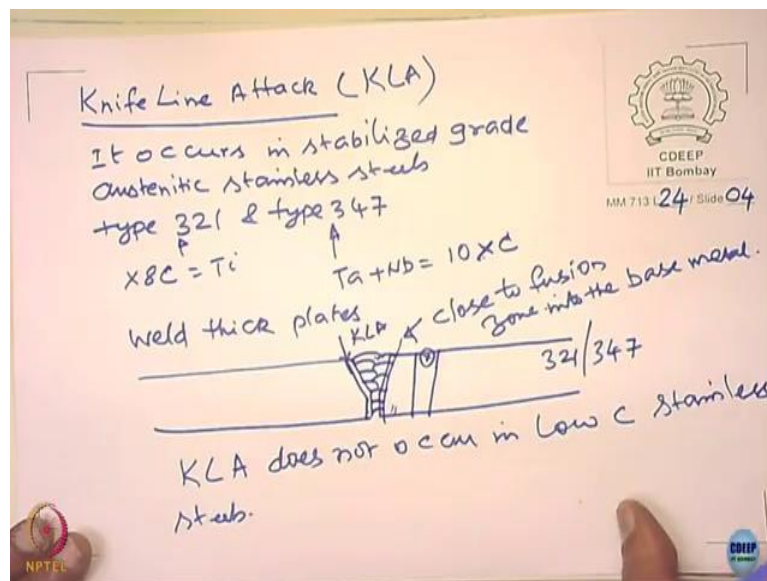 Knife Line Attack (KLA)
It occurs in stabilized grade
austenitic stainless steels
type 321 & type 347
x8C = Ti
Ta+Nb = 10xC
Weld thick plates
KLA
close to fusion
zone into the base metal.
321/347
KLA does not occur in Low C stainless
steels.
CDEEP
IIT Bombay
MM 713 L24/ Slide 04
NPTEL
CDEEP
IIT BOMBAY